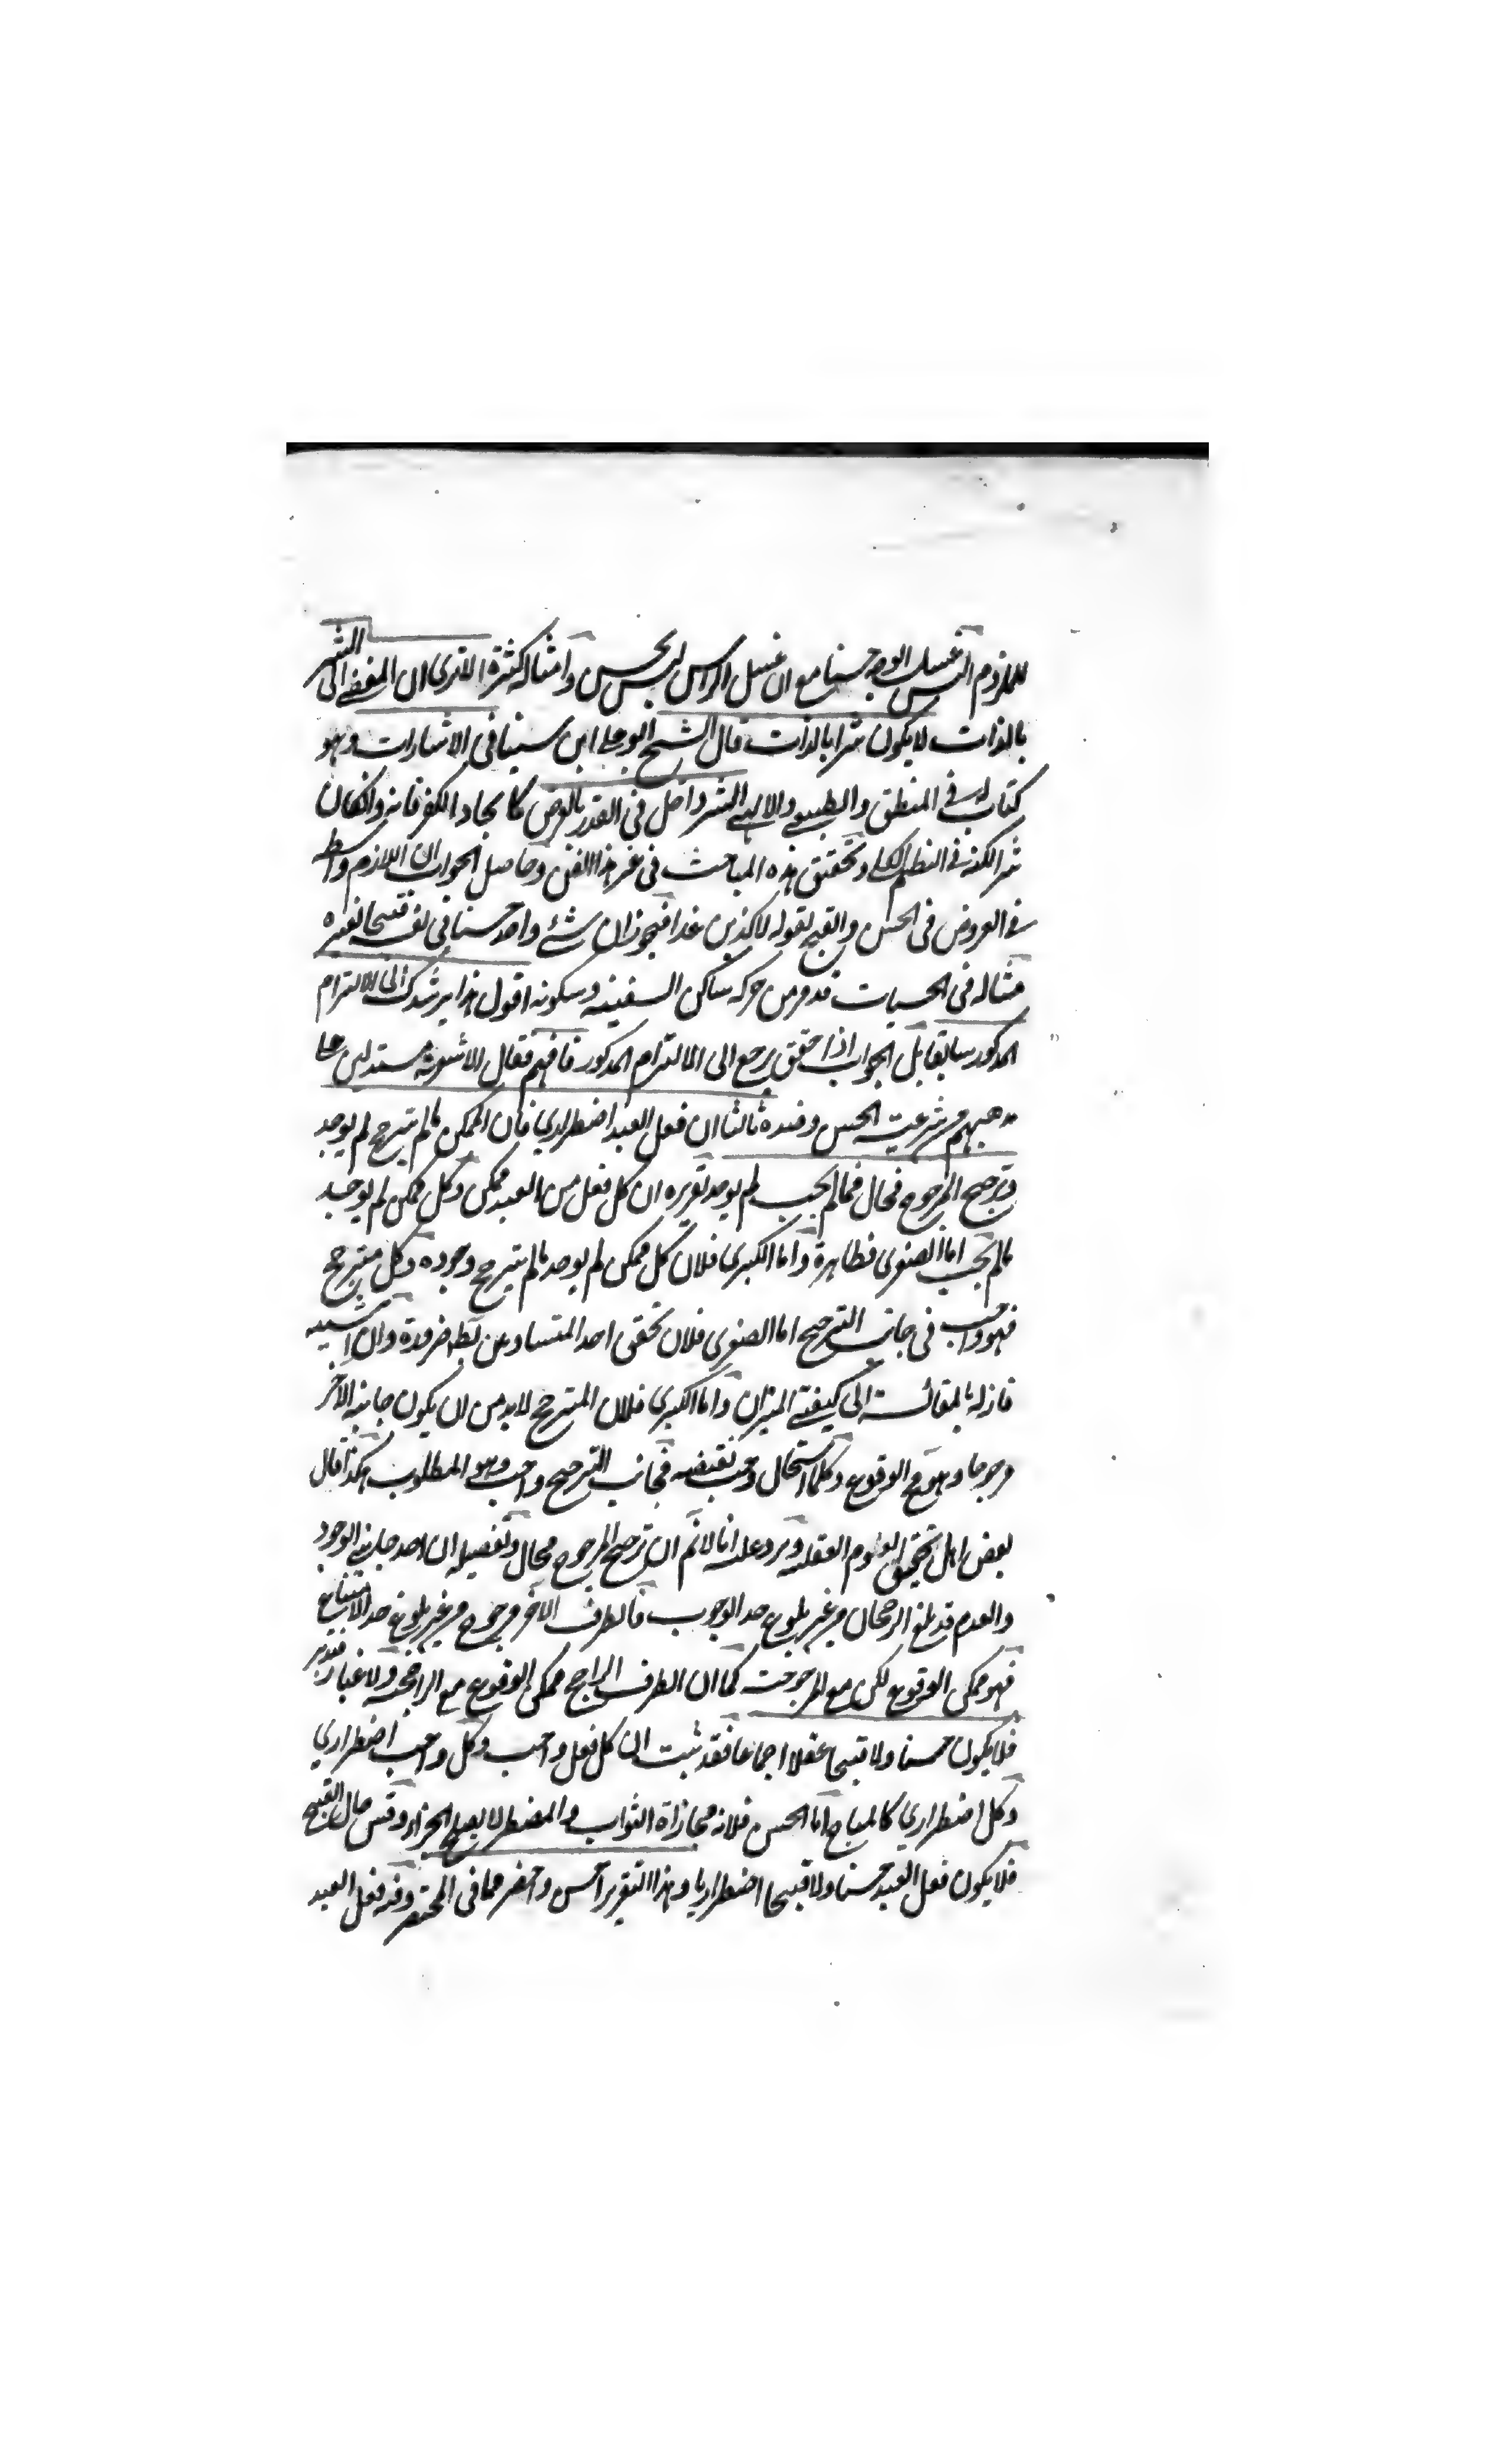 للملزوم اليس غسل الوجه حسنا مع ان غسل الراس ليس بحسن وامثاله كثيرة الا ترى ان المفضے الى الشر
بالذات لا يكون شرا بالذات قال الشيخ ابو على ابن سينا فى الاشارات وهو
كتاب له فے المنطق والطبيعے والالهے الشر داخل فى القدر بالعرض كايجاد الكفر فانه وانكان
شرا لكنه فے النظام الكلى وتحقيق هذه المباحث فى غير هذا الفن وحاصل الجواب ان اللازم واسطة
فے العروض فى الحسن والقبح لقوله لاكذبن غدا فيجوز ان شئ واحد حسنا فى نفسه قبيحا لغيره
مثاله فى الحسيات قد مر من حركة ساكن السفينه وسكونه اقول هذا يرشدك الى الالتزام
المذكور سابقا بل الجواب اذا حقق يرجع الى الالتزام المذكور فافهم فقال الاشعرية مستدلين على
مذهبهم من شرعية الحسن وضده ثالثا ان فعل العبد اضطراري فان الممكن مالم يترجح لم يوجد
وترجيح المرجوح محال فمالم يجب لم يوجد تقريره ان كل فعل من العبد ممكن وكل ممكن لم يوجد
مالم يجب اما الصغرى فظاهرة واما الكبرى فلان كل ممكن لم يوجد مالم يترجح وجوده وكل مترجح
فهو واجب فى جانب الترجيح اما الصغرى فلان تحقق احد المتساويين بط ضرورة وان اشتبه
فازله بالمقائسة الى كيفتے الميزان واما الكبرى فلان المترجح لابد من ان يكون جانبه الآخر
مرجوحا وهو مح الوقوع وكلما استحال وجب نقيضه فجانب الترجيح واجب وهو المطلوب هكذا قال
بعض اهل تحقيق العلوم العقلية ويرد عليه انا لانم ان ترجيح المرجوح محال وتفصيله ان احد جانبے الوجود
والعدم قد بلغ الرجحان من غير بلوغ حد الوجوب فالطرف الآخر مرجوح من غير بلوغ حد الامتناع
فهو ممكن الوقوع لكن مع المرجوحية كما ان الطرف الراجح ممكن الوقوع مع الراجحية ولا غبار فتدبر
فلا يكون حسنا ولا قبيحا عقلا اجماعا فقد ثبت ان كل فعل واجب وكل واجب اضطراري
وكل اضطراري كالمباح اما الحسن فلانه مجازاة الثواب والمضطر لا يصلح الجزاء وقس حال القبيح
فلا يكون فعل العبد حسنا ولا قبيحا اضطراريا وهذا التقرير احسن واخصر مما فى المختصر وفيه فعل العبد